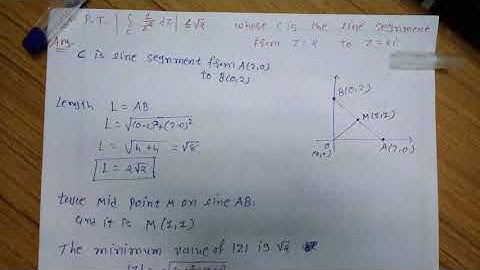 P.T. | ∫ 1/z² dz | ≤ √2 whose C is the line segment
c
from z=2 to z=2i
Ans.
C is line segment from A(2,0)
to B(0,2)
B(0,2)
Length L = AB
L = √(0-2)²+(2-0)²
M(1,1)
L = √4+4 = √8
L = 2√2
0
(0,0)
A(2,0)
Mid Point M on line AB.
and it is M(1,1)
The minimum value of |z| is √2